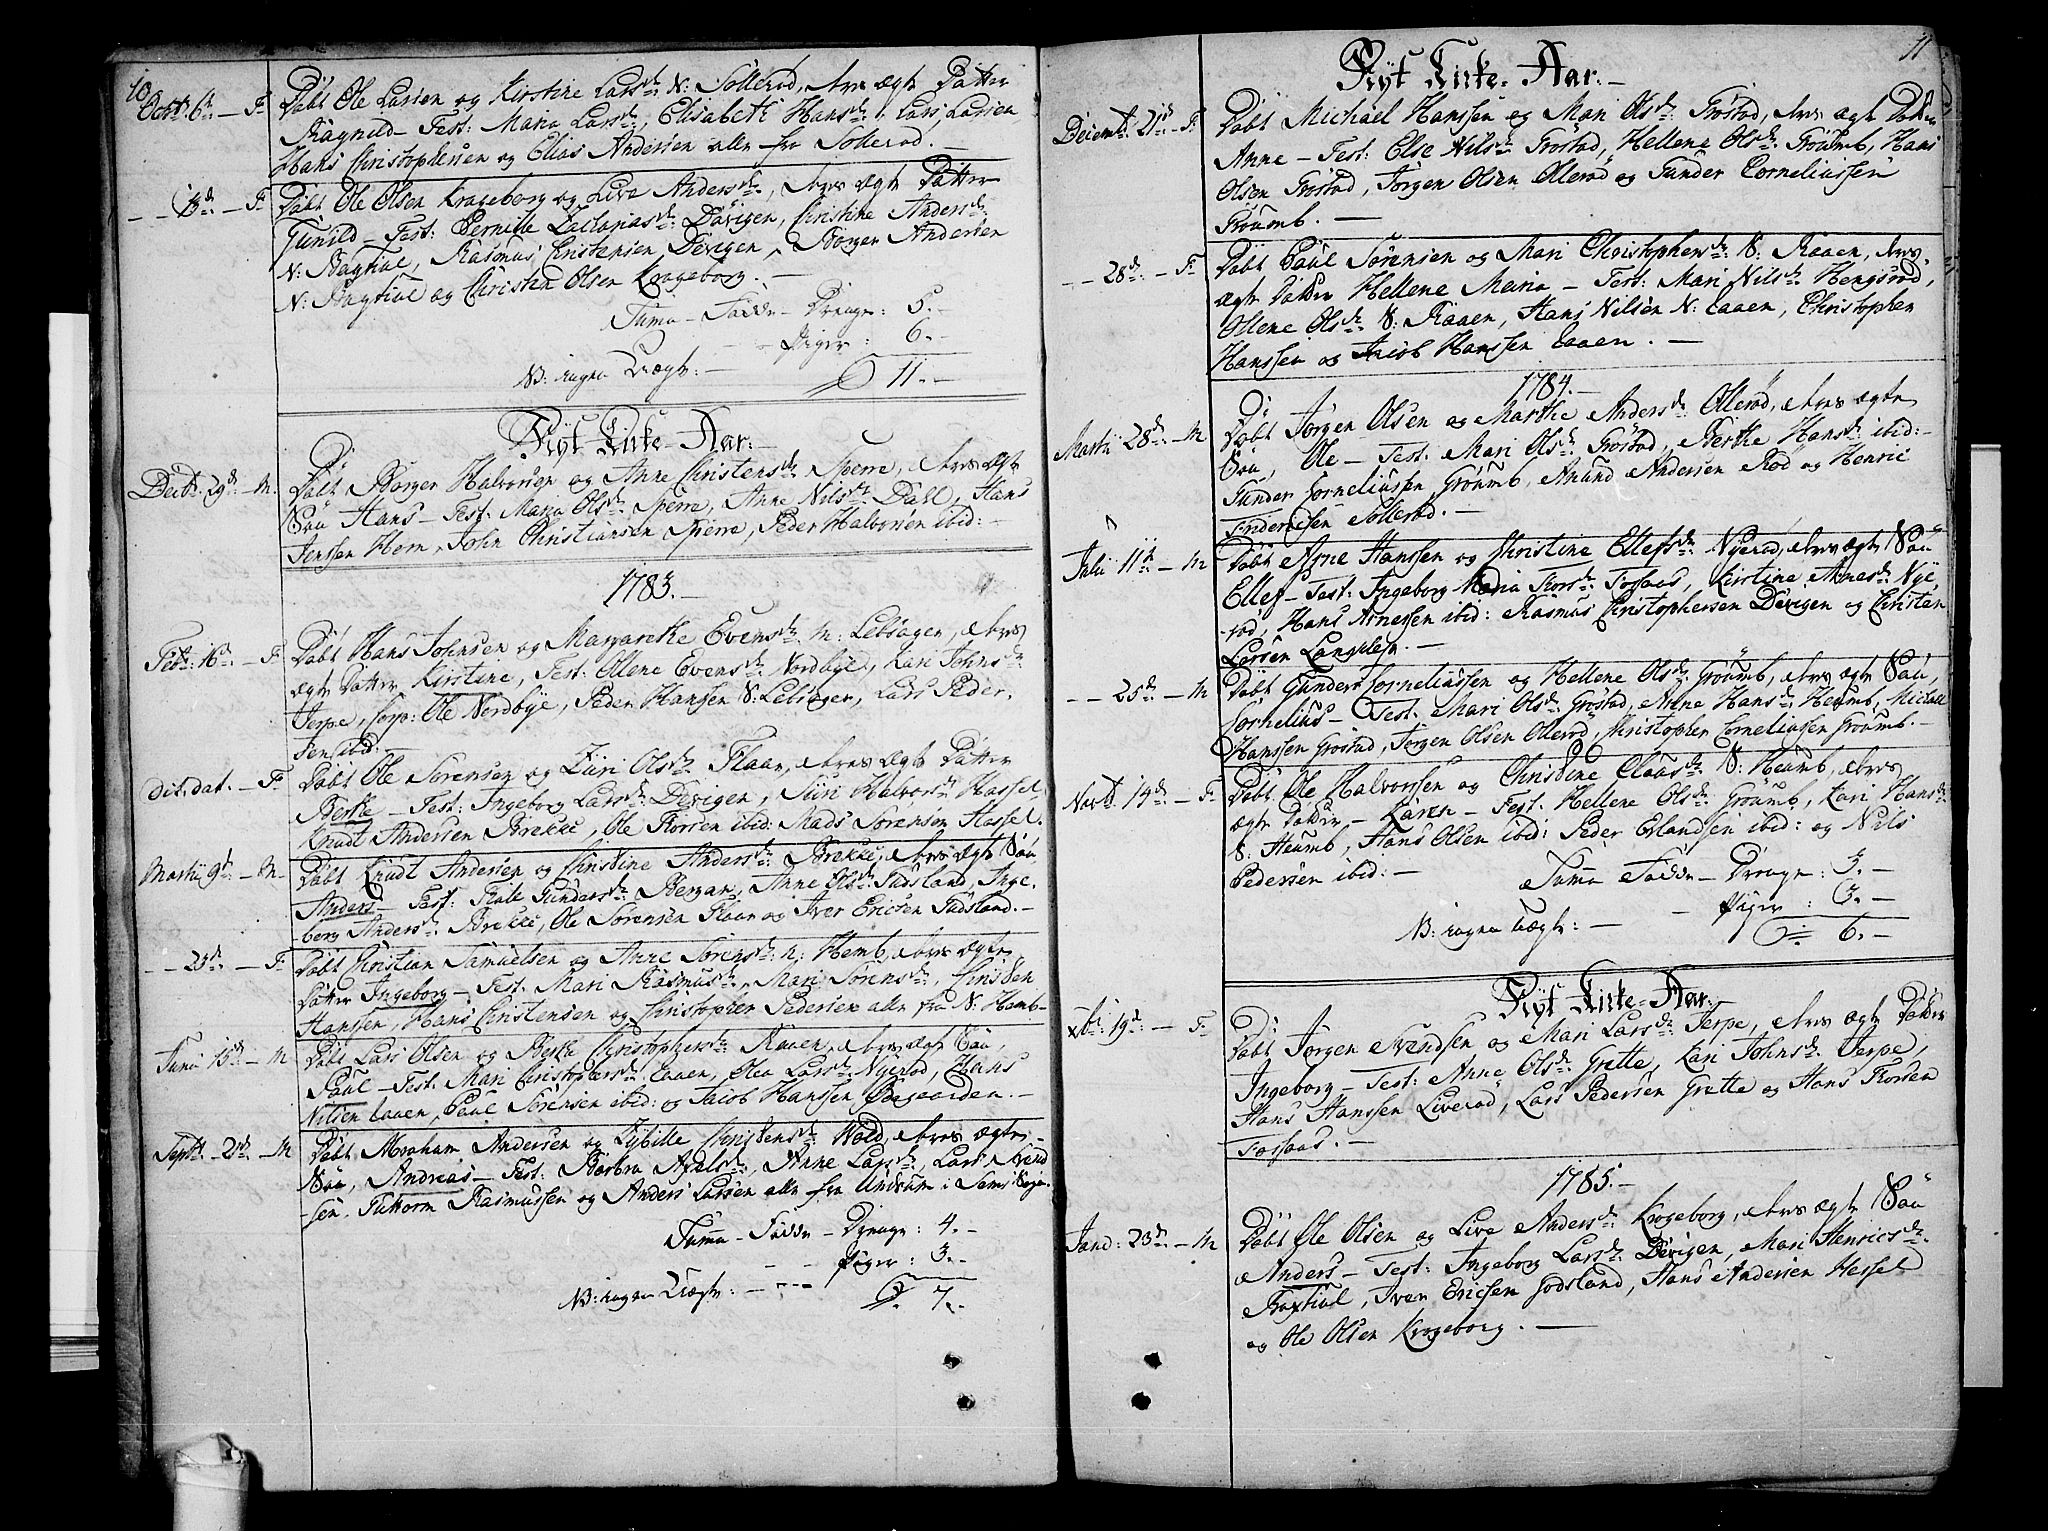 10
Octb: 6te – F. Döbt Ole Larsen og Kirstine Larsdr: N: Sollerød, deres ægte Datter
Ragnild – Test: Maria Larsdr:, Elisabeth Hansdr:, Lars Larsen
Hans Christophersen og Elias Andersen alle fra Sollerød. –
– – 13de – F. Döbt Ole Olsen Krogeborg og Live Andersdr:, deres ægte Datter
Gunild – Test: Pernille Zachariasdr: Dävigen, Christine Andersdr:
N: Bagtiul, Rasmus Christensen Dävigen, Börger Andersen
N: Bagtiul og Christen Olsen Krogeborg. –
Suma – Fødde – Drenge: 5. –
– – Piger: 6. –
NB: ingen Uægte: – 11. –
Nyt Kirke-Aar: –
Decbr: 29de – M. Döbt Børger Halvorsen og Anne Christensdr: Sperre, deres ægte
Søn Hans – Test: Maria Olsdr: Sperre, Anne Nilsdr: Dahl, Hans
Jenssen Hem, John Christiansen Sperre, Peder Halvorsen ibid: –
1783. –
Febr: 16de – F. Döbt Hans Johnsen og Margarethe Evensdr: M: Lebsager, deres
ægte Datter Kirstine, Test: Ollene Evensdr: Nordbye, Kari Johnsdr:
Jerpe, Corp: Ole Nordbye, Peder Hansen N: Lebsager, Lars Peder-
sen ibid: –
dit. dat. – F. Döbt Ole Sörensen og Siiri Olsdr: Flaan, deres ægte Datter
Berthe – Test: Ingeborg Larsdr: Devigen, Siiri Halvorsdr: Hassel,
Knudt Andersen Brekke, Ole Thorsen ibid: Mads Sørensen Hassel.
Martii 9de – M. Döbt Knudt Andersen og Christine Andersdr: Brekke, deres ægte Søn
Anders – Test: Kale Gundersdr: Bergan, Anne Olsdr: Gudsland, Inge-
borg Andersdr: Brekke, Ole Sörensen Flaan og Iver Ericsen Gudsland. –
– – 23de – F. Döbt Christian Samuelsen og Anne Sörensdr: N: Hemb, deres ægte
Datter Ingeborg – Test: Mari Rasmusdr:, Mari Sörensdr:, Christen
Hanssen, Hans Christensen og Christopher Pedersen alle fra N: Hamb –
Juni 15de – M Döbt Lars Olsen og Berthe Christophersdr: Raaen, deres ægte Søn,
Paul – Test: Mari Christophersdr: Eaaen, Olea Larsdr: Nyerød, Hans
Nilsen Eaaen, Paul Sörensen ibid: og Jacob Hanssen Præstegaarden. –
Septbr: 21de – M Döbt Abraham Andersen og Sybille Christensdr: Wold, deres ægte
Søn, Andreas – Test: Barbra Axelsdr:, Anne Larsdr:, Lars Svend
sen, Guttorm Rasmussen og Anders Larsen alle fra Undrum i Sems Sogn.
Suma – Fødde – Drenge: 4. –
– – Piger: 3. –
NB: ingen Uægte: – – – 7. –
11
Nyt Kirke-Aar: –
Decemb: 21de – F. Döbt Michäel Hanssen og Mari Olsdr: Grøstad, deres ægte Datter
Anne – Test: Else Nilsdr: Grøstad, Hellene Olsdr: Gröumb, Hans
Olsen Grøstad, Jörgen Olsen Ollerød og Gunder Corneliussen
Gröumb. –
– – 28de – F. Döbt Paul Sørensen og Mari Christophersdr: N: Raaen, deres
ægte Datter Hellene Maria – Test: Mari Nilsdr: Hengsrød,
Ollene Olsdr: N: Raaen, Hans Nilsen N: Eaaen, Christopher
Hanssen og Jacob Hanssen Eaaen. –
1784. –
Martii 28de – M Döbt Jörgen Olsen og Marthe Andersdr: Ollerød, deres ægte
Søn, Ole – Test: Mari Olsdr: Grøstad, Berthe Hansdr: ibid: –
Gunder Corneliussen Gröumb, Amund Andersen Röd og Henric
Fredericsen Sollerød. –
Julii 11te – M Döbt Arne Hanssen og Christine Ellefsdr: Nyerød, deres ægte Søn
Ellef – Test: Ingeborg Maria Thorsdr: Fossaas, Kirstine Arnesdr: Nye-
rød, Hans Arnessen ibid: Rasmus Christophersen Devigen og Christen
Larsen Langelsen. –
– – 25de – M Döbt Gunder Corneliussen og Hellene Olsdr: Gröumb, deres ægte Søn,
Cornelius – Test: Mari Olsdr: Grøstad, Anne Hansdr: Heumb, Michäel
Hanssen Grøstad, Jørgen Olsen Ollerød, Christopher Corneliussen Gröumb –
Novbr: 14de – F. Döbt Ole Halvorssen og Christine Clausdr: N: Heumb, deres
ægte Datter – Karen – Test: Hellene Olsdr: Gröumb, Kari Hansdr:
N: Heumb, Hans Olsen ibid: Peder Erlandsen ibid: og Niels
Pedersen ibid: –
Suma Fødde – Drenge: 3. –
– Piger: 3. –
NB: ingen uægte: – 6. –
Nyt Kirke-Aar:
Xbr: 19de – F. Döbt Jörgen Svendsen og Mari Larsdr: Jerpe, deres ægte Datter
Ingeborg – Test: Anne Olsdr: Grette, Kari Johnsdr: Jerpe,
Hans Hanssen Liverød, Lars Pedersen Grette og Hans Thorsen
Fossaas. –
1785. –
Janr: 23de – M Döbt Ole Olsen og Live Andersdr: Krogeborg, deres ægte Søn
Anders – Test: Ingeborg Larsdr: Devigen, Mari Henricsdr:
Bagtiul, Iver Ericsen Godsland, Hans Andersen Hessel
og Ole Olsen Krogeborg. –